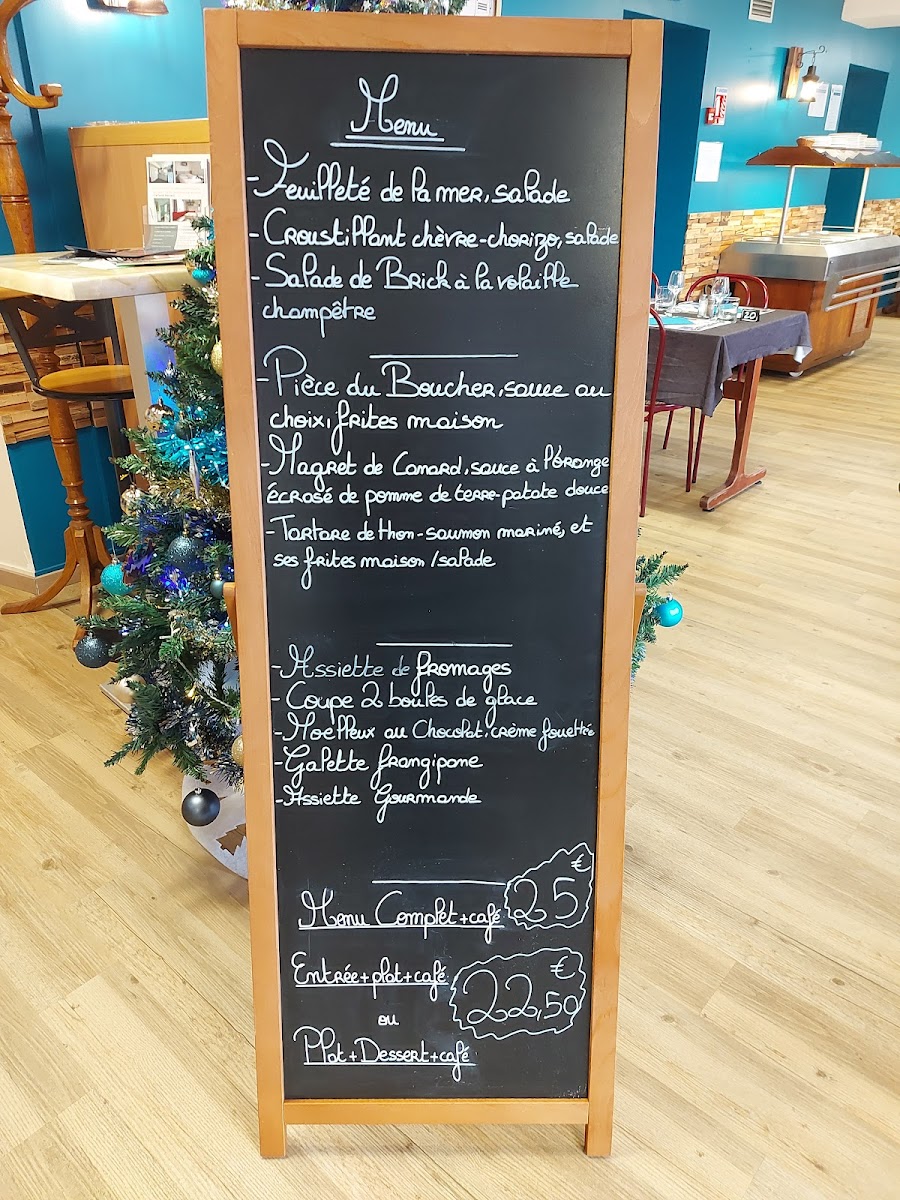 Menu
- Feuilleté de la mer, salade
- Croustillant chèvre-chorizo, salade
- Salade de Brick à la volaille
champêtre
- Pièce du Boucher, sauce au
choix, frites maison
- Magret de Canard, sauce à l'orange
écrasé de pomme de terre-patate douce
- Tartare de thon-saumon mariné, et
ses frites maison /salade
- Assiette de fromages
- Coupe 2 boules de glace
- Moelleux au Chocolat, crème fouettée
- Galette frangipane
- Assiette Gourmande
Menu Complet+café 25 €
Entrée+plat+café
22,50 €
ou
Plat+Dessert+café
20